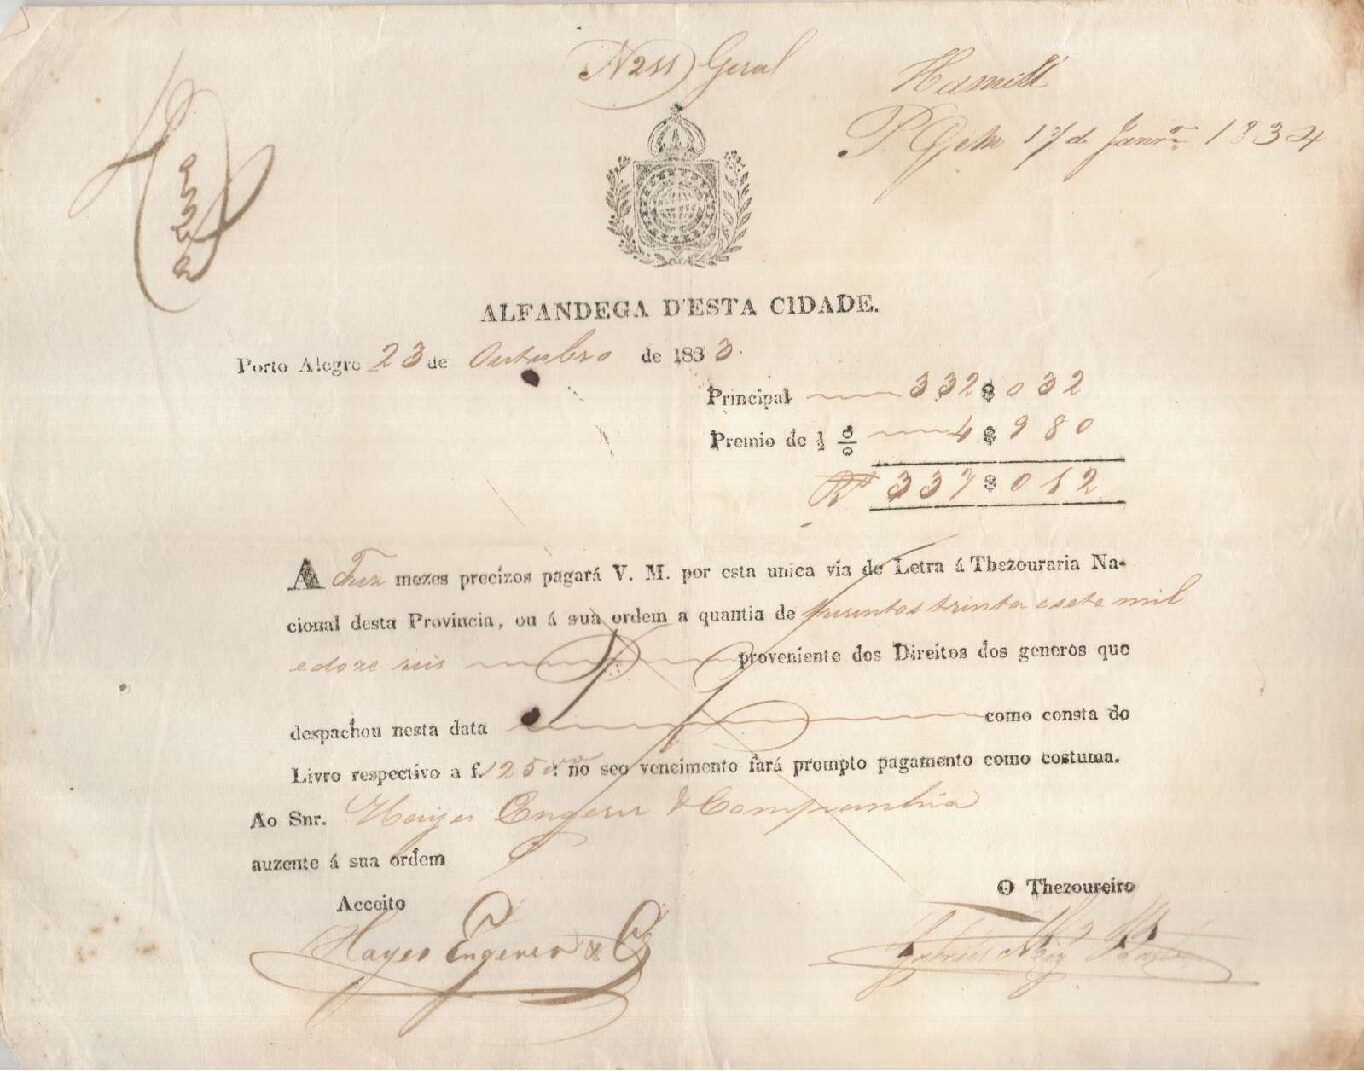 N 211 Geral
Hamill
P. 17 de Janrº 1834
ALFANDEGA D'ESTA CIDADE.
Porto Alegre 23 de Outubro de 1833.
Principal 332$032
Premio de ½ % 4$980
Rs 337$012
A Trez mezes precizos pagará V. M. por esta unica via de Letra á Thezouraria Na-
cional desta Provincia, ou á sua ordem a quantia de tresentos trinta e sete mil
e doze reis proveniente dos Direitos dos generos que
despachou nesta data como consta do
Livro respectivo a f. 125 : no seo vencimento fará prompto pagamento como costuma.
Ao Snr. Hayes Engerer & Companhia
auzente á sua ordem
Acceito
O Thezoureiro
Hayes Engerer & Cª